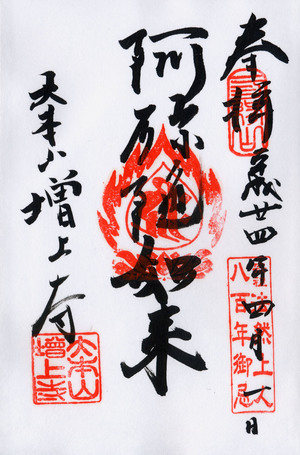 奉拝
平成廿四年四月一日
法然上人
八百年御忌
阿弥陀如来
大本山増上寺
大本山
増上寺